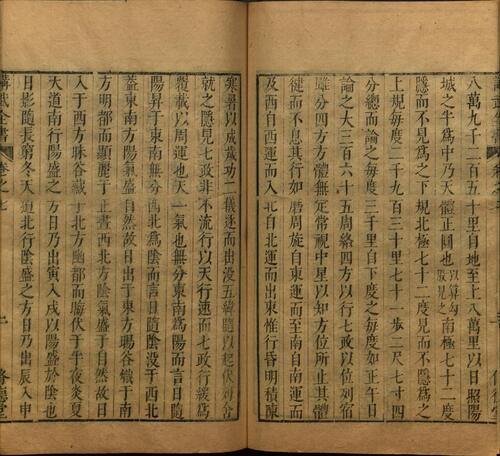 八萬九千二百五十里自地至上八萬里以日照陽
城之半爲中乃天體正圓也以算勾股見之南極七十二度
隱而不見爲之下規北極七十二度見而不隱爲之
上規每度二千九百三十里七十一步二尺七寸四
分總而論之每度三千里自下度之每度如正午日
論之大三百六十五周絡四方以行七政以位列宿
雖分四方方體無定常視中星以知方位所止其體
健而不息其行如磨周旋自東運而至南自南運而
及酉自西運而入北自北運而出東惟行昏明積陳
寒暑以成歲功二儀迭而出没五緯隨以起伏列舍
就之隱見七政非不流行以天行速而七政行緩爲
覆載以周運也天一氣也無分東南爲陽而言日隨
陽昇于東南無分西北爲陰而言日隨陰没于西北
蓋東南方陽氣盛自然故日出于東方暘谷熾于南
方明都而顯麗于正晝西北方陰氣盛于自然故日
入于西方昧谷藏于北方幽都而晦伏于半夜炎夏
天道南行陽盛之方日乃出寅入戌以陽盛於陰也
日影隨長窮冬天道北行陰盛之方日乃出辰入申
講武全書
卷之七